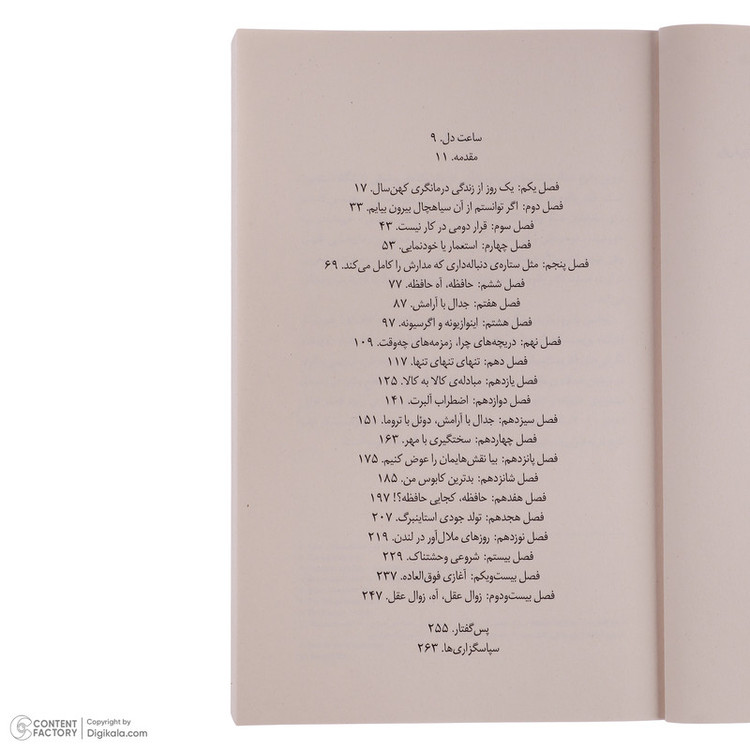 ساعت دل. ۹
مقدمه. ۱۱
فصل یکم: یک روز از زندگی درمانگری کهن‌سال. ۱۷
فصل دوم: اگر توانستم از آن سیاهچال بیرون بیایم. ۳۳
فصل سوم: قرار دومی در کار نیست. ۴۳
فصل چهارم: استعمار یا خودنمایی. ۵۳
فصل پنجم: مثل ستاره‌ی دنباله‌داری که مدارش را کامل می‌کند. ۶۹
فصل ششم: حافظه، آه حافظه. ۷۷
فصل هفتم: جدال با آرامش. ۸۷
فصل هشتم: اینوازیونه و اگرسیونه. ۹۷
فصل نهم: دریچه‌های چرا، زمزمه‌های چه‌وقت. ۱۰۹
فصل دهم: تنهای تنهای تنها. ۱۱۷
فصل یازدهم: مبادله‌ی کالا به کالا. ۱۲۵
فصل دوازدهم: اضطراب آلبرت. ۱۴۱
فصل سیزدهم: جدال با آرامش، دوئل با تروما. ۱۵۱
فصل چهاردهم: سختگیری با مهر. ۱۶۳
فصل پانزدهم: بیا نقش‌هایمان را عوض کنیم. ۱۷۵
فصل شانزدهم: بدترین کابوس من. ۱۸۵
فصل هفدهم: حافظه، کجایی حافظه؟! ۱۹۷
فصل هجدهم: تولد جودی استاینبرگ. ۲۰۷
فصل نوزدهم: روزهای ملال‌آور در لندن. ۲۱۹
فصل بیستم: شروعی وحشتناک. ۲۲۹
فصل بیست‌ویکم: آغازی فوق‌العاده. ۲۳۷
فصل بیست‌ودوم: زوال عقل، آه، زوال عقل. ۲۴۷
پس‌گفتار. ۲۵۵
سپاسگزاری‌ها. ۲۶۳
CONTENT FACTORY
Copyright by
Digikala.com